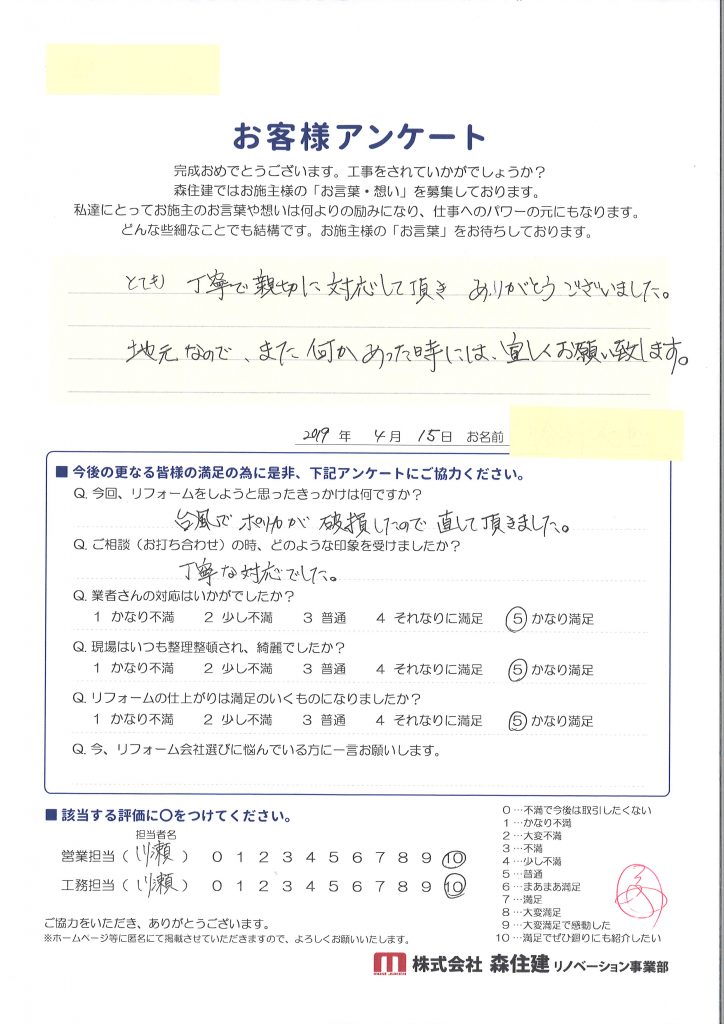 お客様アンケート
完成おめでとうございます。工事をされていかがでしょうか？
森住建ではお施主様の「お言葉・想い」を募集しております。
私達にとってお施主のお言葉や想いは何よりの励みになり、仕事へのパワーの元にもなります。
どんな些細なことでも結構です。お施主様の「お言葉」をお待ちしております。
とても 丁寧で親切に対応して頂き ありがとうございました。
地元なので、また何かあった時には、宜しくお願い致します。
2019 年 4月 15日 お名前
■ 今後の更なる皆様の満足の為に是非、下記アンケートにご協力ください。
Q. 今回、リフォームをしようと思ったきっかけは何ですか？
台風でポリカが破損したので直して頂きました。
Q. ご相談（お打ち合わせ）の時、どのような印象を受けましたか？
丁寧な対応でした。
Q. 業者さんの対応はいかがでしたか？
1 かなり不満 2 少し不満 3 普通 4 それなりに満足 5 かなり満足
Q. 現場はいつも整理整頓され、綺麗でしたか？
1 かなり不満 2 少し不満 3 普通 4 それなりに満足 5 かなり満足
Q. リフォームの仕上がりは満足のいくものになりましたか？
1 かなり不満 2 少し不満 3 普通 4 それなりに満足 5 かなり満足
Q. 今、リフォーム会社選びに悩んでいる方に一言お願いします。
■ 該当する評価に〇をつけてください。
担当者名
営業担当（ 川瀬 ） 0 1 2 3 4 5 6 7 8 9 10
工務担当（ 川瀬 ） 0 1 2 3 4 5 6 7 8 9 10
0…不満で今後は取引したくない
1…かなり不満
2…大変不満
3…不満
4…少し不満
5…普通
6…まあまあ満足
7…満足
8…大変満足
9…大変満足で感動した
10…満足でぜひ廻りにも紹介したい
ご協力をいただき、ありがとうございます。
※ホームページ等に匿名にて掲載させていただきますので、よろしくお願いいたします。
株式会社 森住建 リノベーション事業部